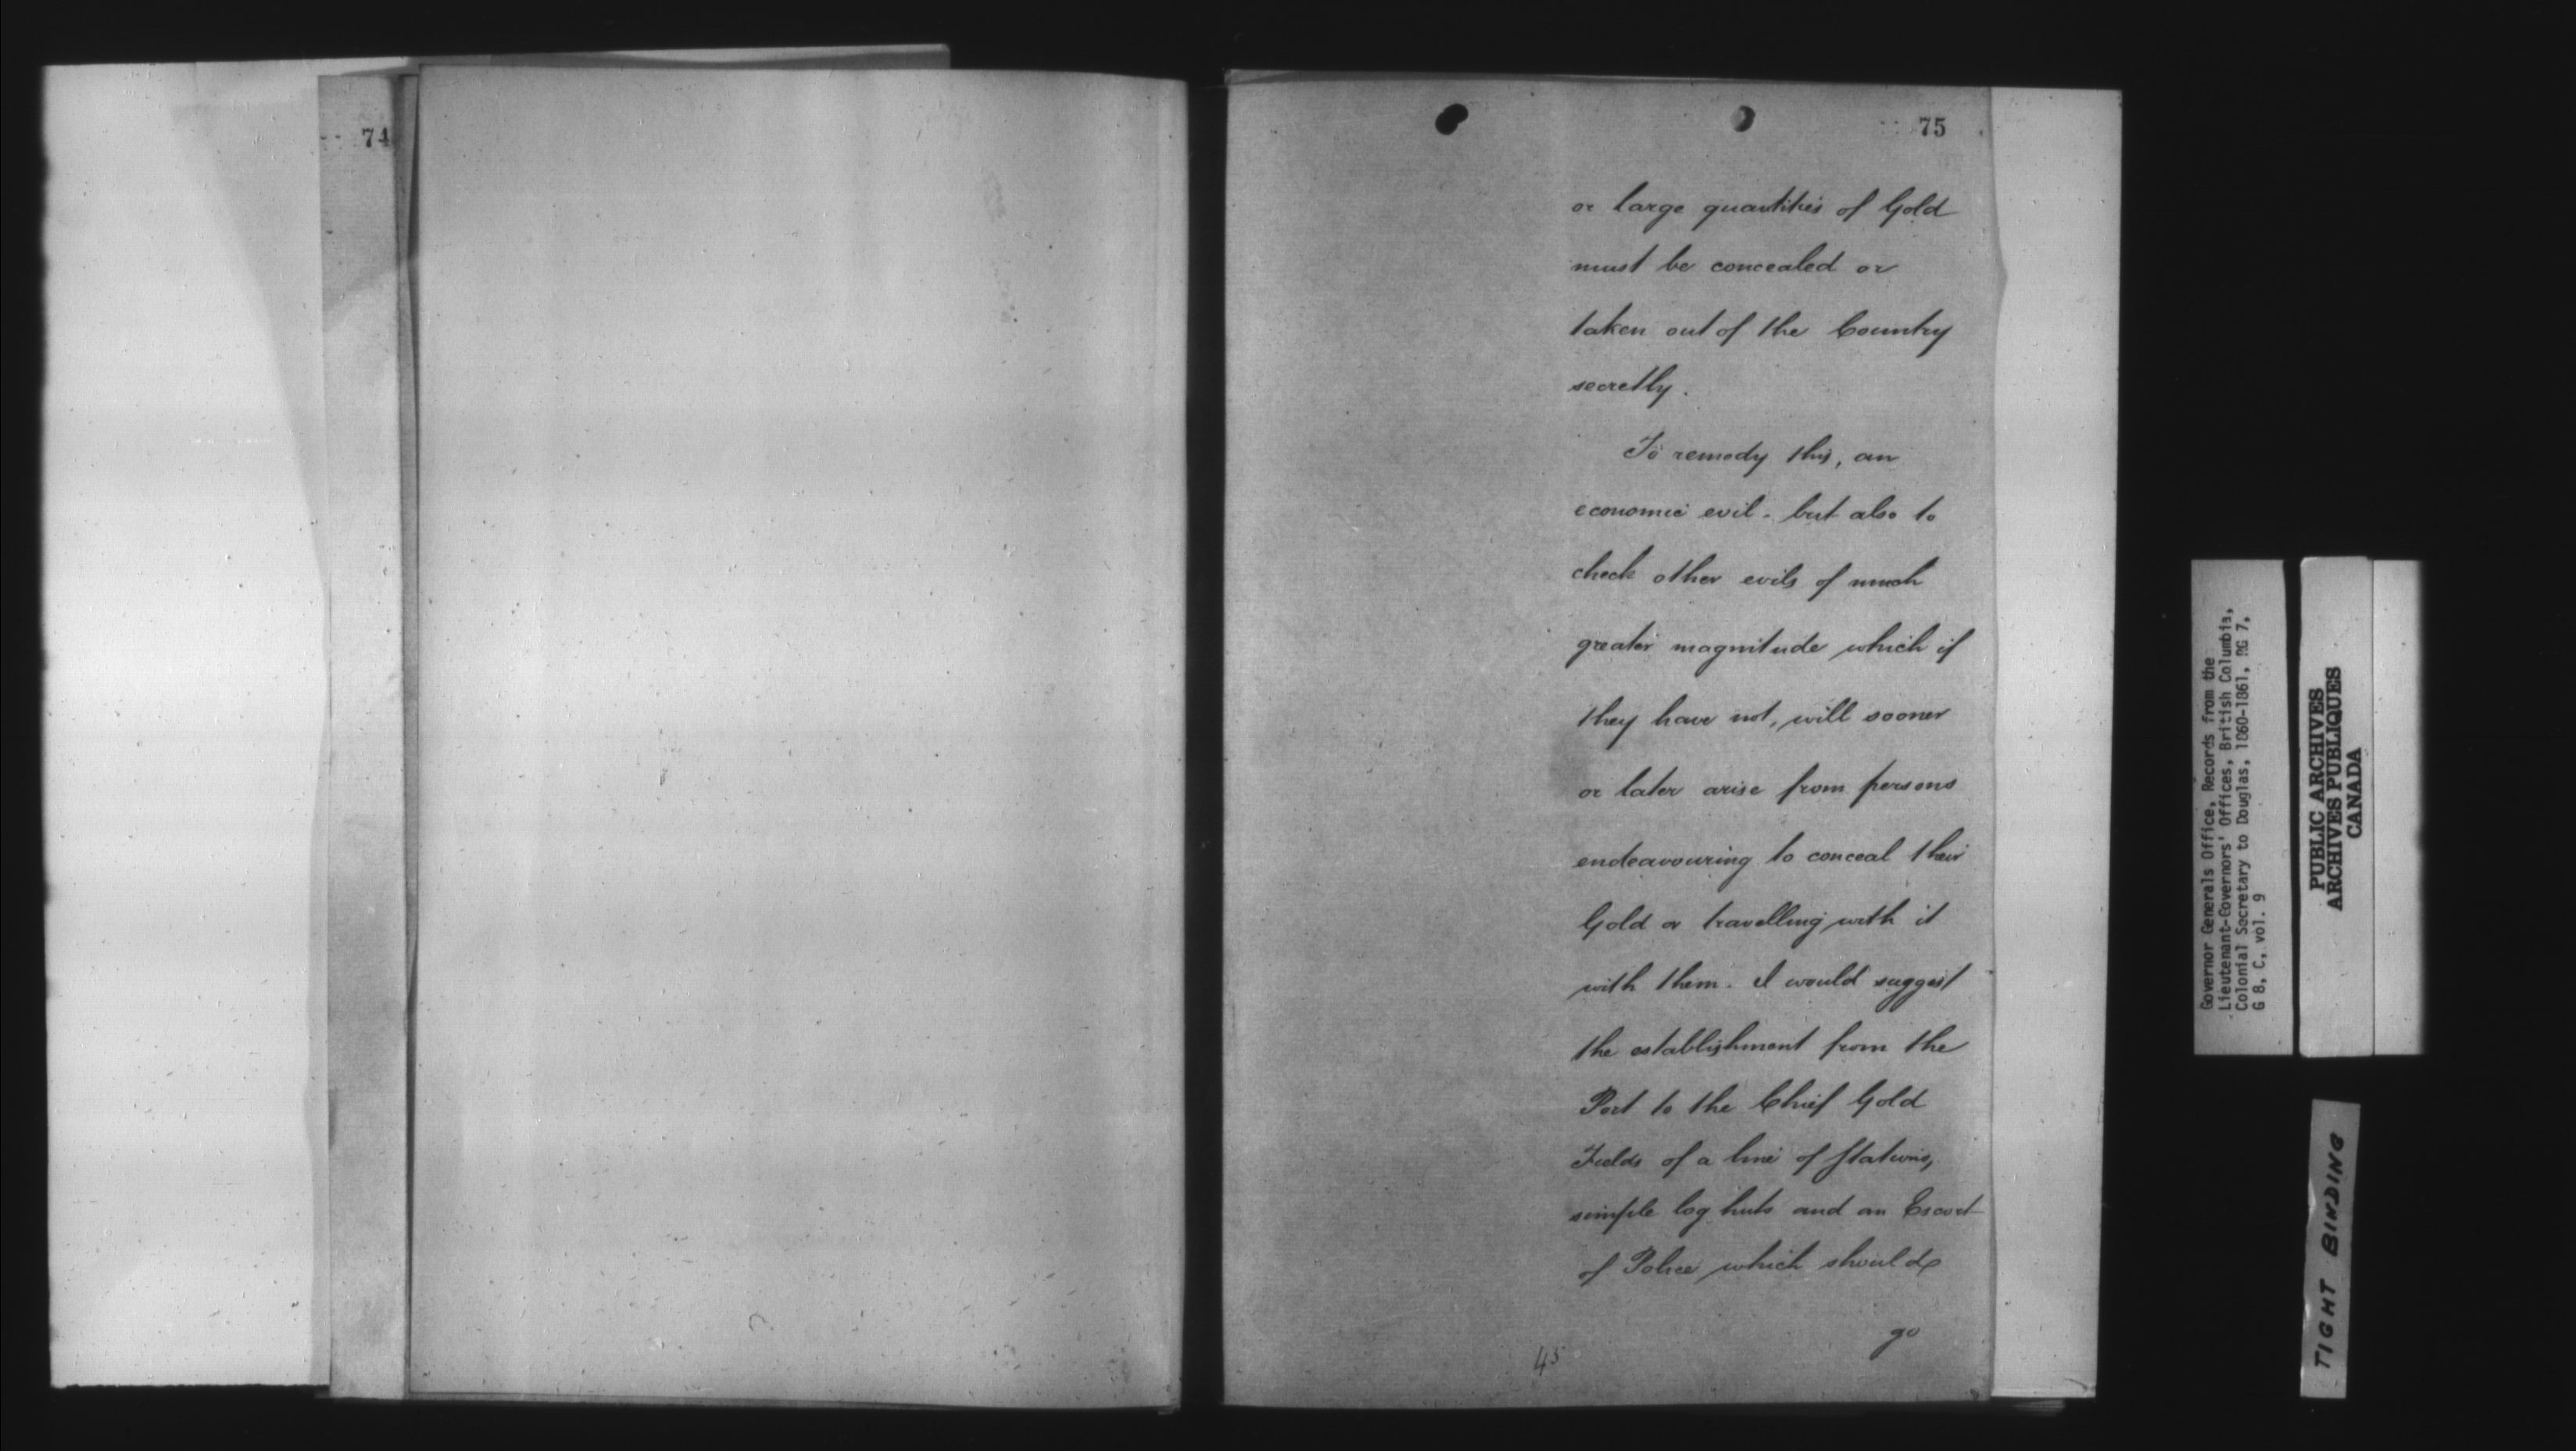 74
75
or large quantities of Gold
must be concealed or
taken out of the Country
secretly.
To remedy this, an
economic evil - but also to
check other evils of much
greater magnitude which if
they have not, will sooner
or later arise from persons
endeavouring to conceal their
Gold or travelling with it
with them. I would suggest
the establishment from the
Port to the Chief Gold
Fields of a line of Stations,
simple log huts and an Escort
of Police which should
go
45
Governor Generals Office, Records from the
Lieutenant-Governors' Offices, British Columbia,
Colonial Secretary to Douglas, 1860-1861, RG 7,
G 8, C, vol. 9
PUBLIC ARCHIVES
ARCHIVES PUBLIQUES
CANADA
TIGHT BINDING